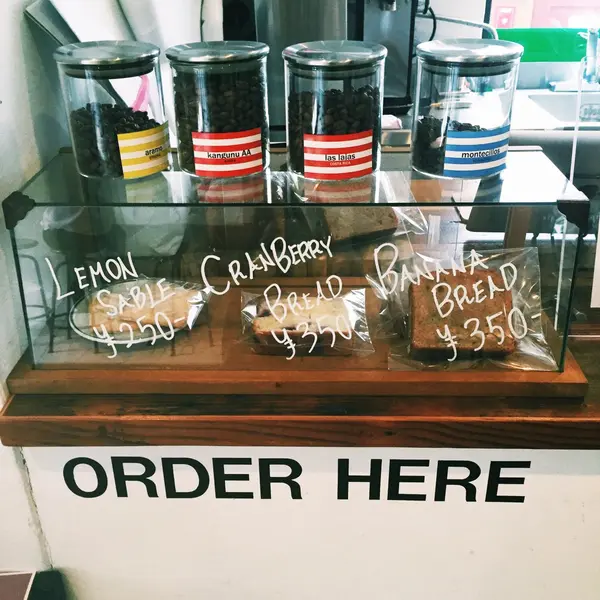 aramo
kangunu AA
las lajas
COSTA RICA
montecillos
LEMON
SABLE
¥250-
CRANBERRY
BREAD
¥350-
BANANA
BREAD
¥350-
ORDER HERE